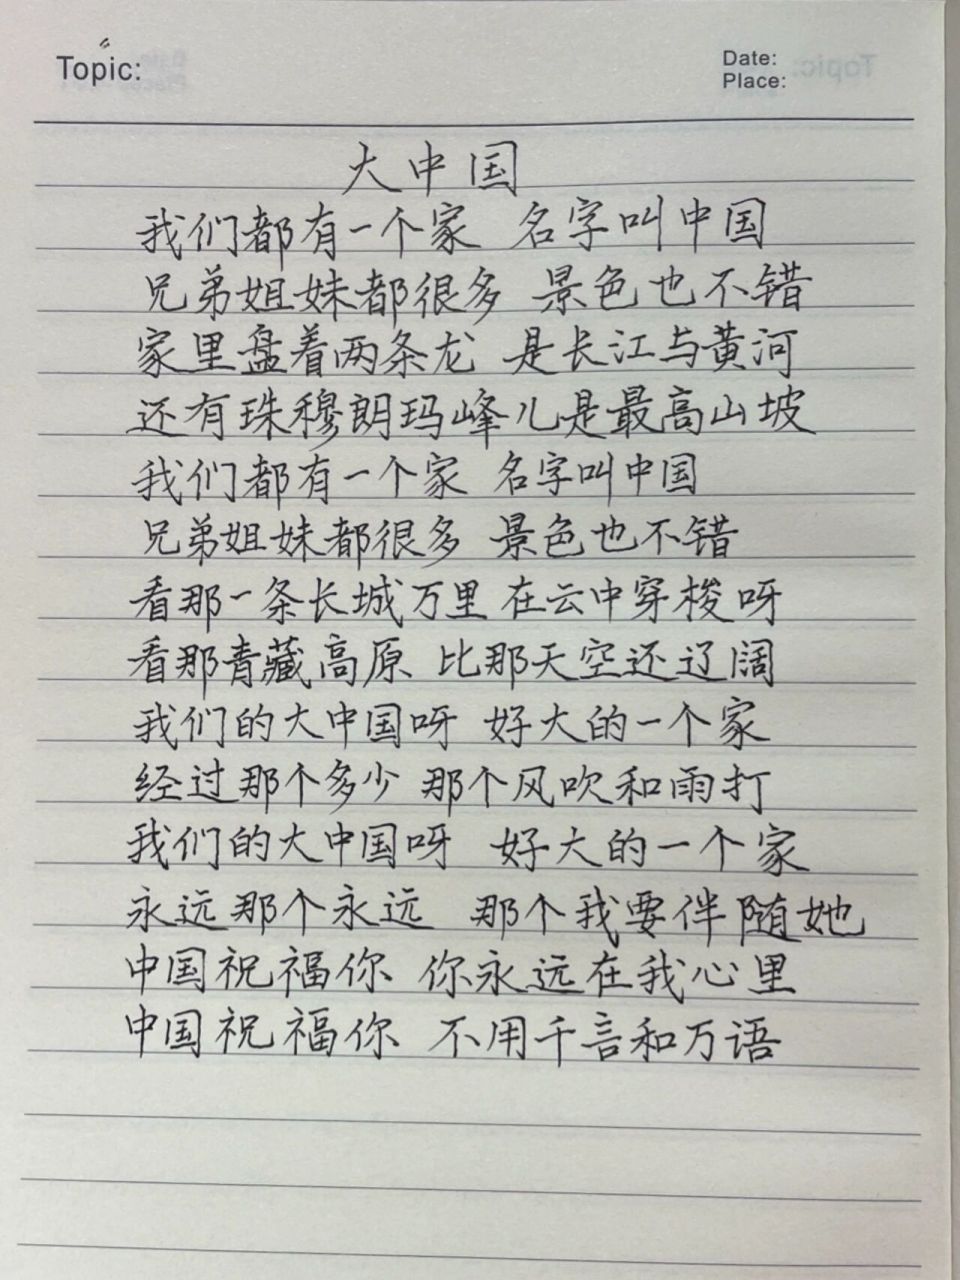 Topic:
Date:
Place:
大中国
我们都有一个家 名字叫中国
兄弟姐妹都很多 景色也不错
家里盘着两条龙 是长江与黄河
还有珠穆朗玛峰儿是最高山坡
我们都有一个家 名字叫中国
兄弟姐妹都很多 景色也不错
看那一条长城万里 在云中穿梭呀
看那青藏高原 比那天空还辽阔
我们的大中国呀 好大的一个家
经过那个多少 那个风吹和雨打
我们的大中国呀 好大的一个家
永远那个永远 那个我要伴随她
中国祝福你 你永远在我心里
中国祝福你 不用千言和万语